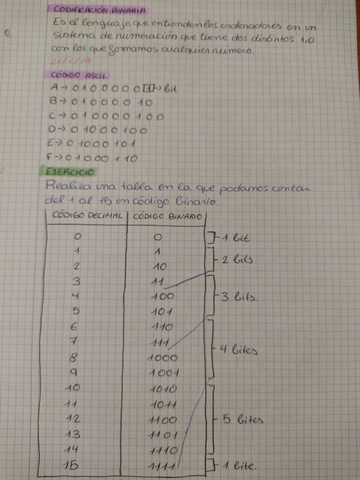 CODIFICACIÓN BINARIA
Es el lenguaje que entienden los ordenadores en un
sistema de numeración que tiene dos distintos 1,0
con los que formamos cualquier número.
CÓDIGO ASCII
A→ 0 1 0 0 0 0 0 1 → bit
B→ 0 1 0 0 0 0 10
C→ 0 1 0 0 0 0 1 0 0
D→ 0 1000 100
E→ 0 1000 101
F→ 0 1000 1 10
EJERCICIO
Realiza una tabla en la que podamos contar
del 1 al 15 en código binario.
CÓDIGO DECIMAL CÓDIGO BINARIO
0 0 1 bit
1 1
2 10 2 bits
3 11
4 100 3 bits
5 101
6 110
7 111 4 bites
8 1000
9 1001
10 1010
11 1011
12 1100 5 bites
13 1101
14 1110
15 1111 1 bite.